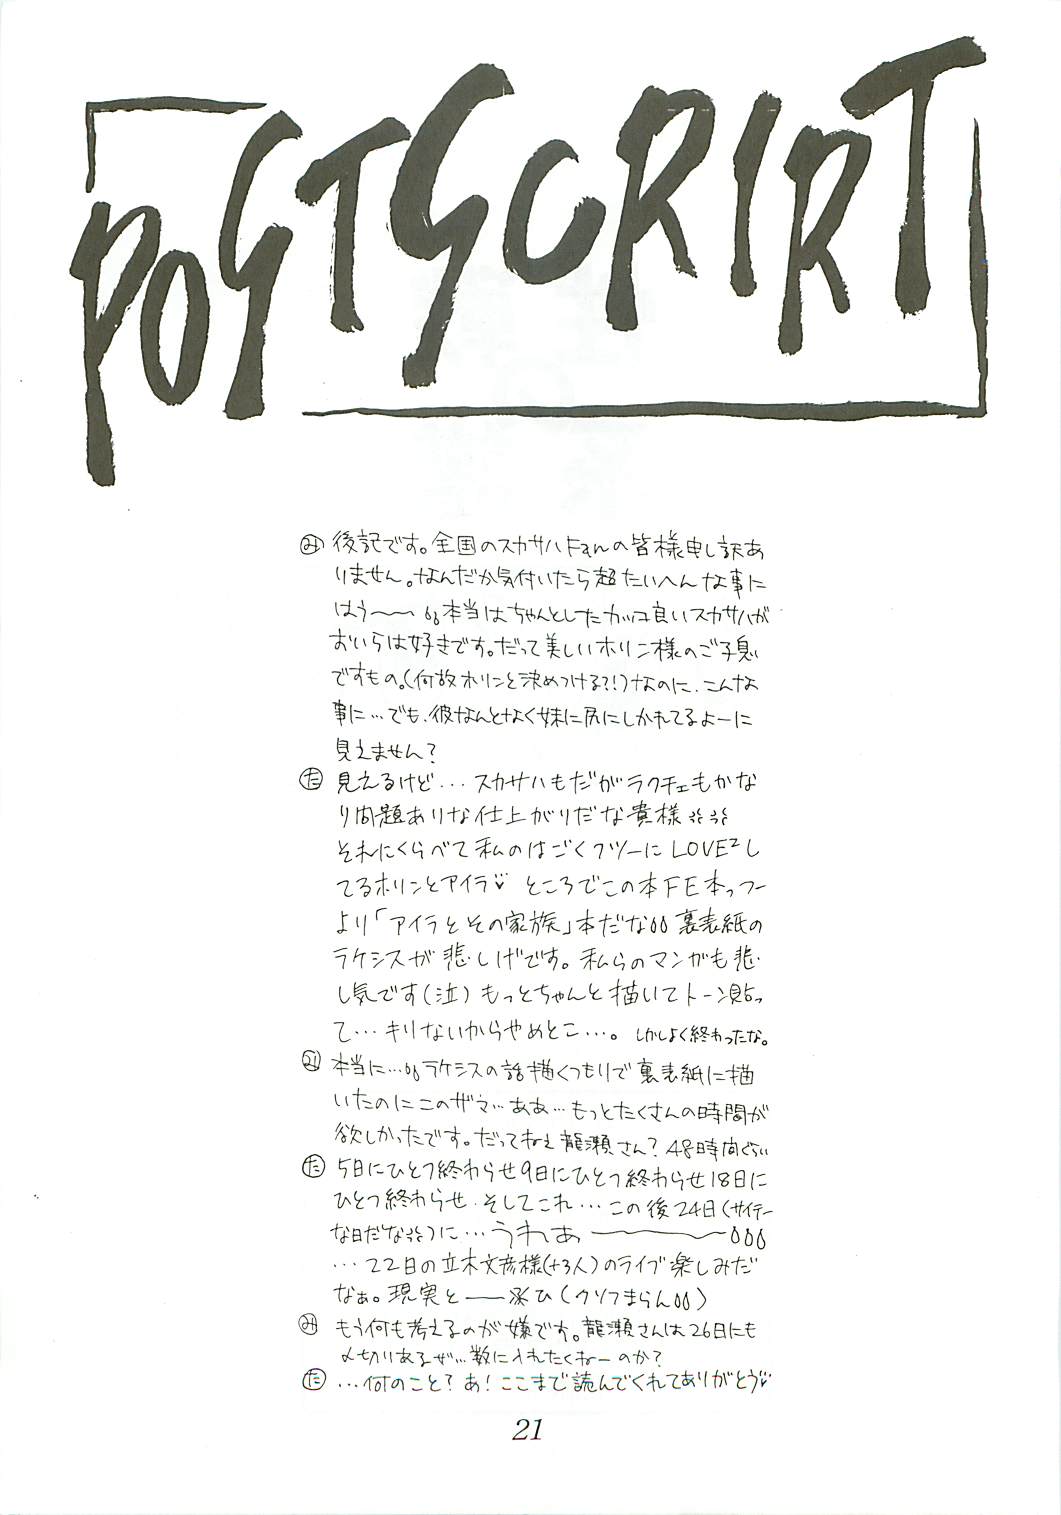 POSTSCRIPT
み 後記です。全国のスカサハFanの皆様申し訳あ
りません。なんだか気付いたら超たいへんな事に
はう〜〜 本当はちゃんとしたカッコ良いスカサハが
おいらは好きです。だって美しいホリン様のご子息
ですもの。(何故ホリンと決めつける?!)なのに、こんな
事に…でも、彼なんとなく妹に尻にしかれてるよーに
見えません?
た 見えるけど...スカサハもだがラクチェもかな
り問題ありな仕上がりだな貴様
それにくらべて私のはごくフツーにLOVE²し
てるホリンとアイラ♡ ところでこの本FE本っつー
より「アイラとその家族」本だな 裏表紙の
ラケシスが悲しげです。私らのマンガも悲
し気です(泣)もっとちゃんと描いてトーン貼っ
て…キリないからやめとこ…。しかしよく終わったな。
み 本当に…ラケシスの話描くつもりで裏表紙に描
いたのにこのザマ…ああ…もっとたくさんの時間が
欲しかったです。だってねぇ龍瀬さん?48時間ぐらい
た 5日にひとつ終わらせ9日にひとつ終わらせ18日に
ひとつ終わらせ、そしてこれ…この後24日(サイテー
な日だな)に…うわあ〜〜〜
…22日の立木文彦様(+3人)のライブ楽しみだ
なぁ。現実とー※ひ(クソつまらん)
み もう何も考えるのが嫌です。龍瀬さんは26日にも
〆切りあるぜ…数に入れたくねーのか?
た …何のこと?あ!ここまで読んでくれてありがとう♡
21